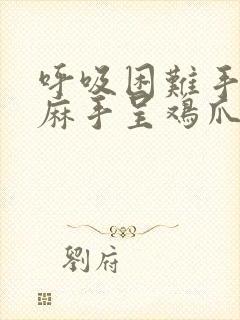 呼吸困難手
麻手呈鸡爪
劉府